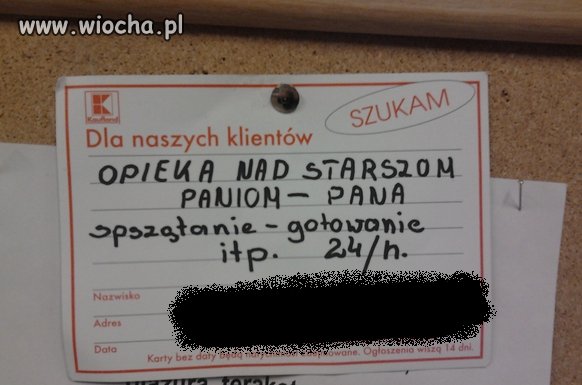 www.wiocha.pl
Kaufland
SZUKAM
Dla naszych klientów
OPIEKA NAD STARSZOM
PANIOM - PANA
spszątanie - gotowanie
itp. 24/h.
Nazwisko
Adres
Data
Karty bez daty będą Ogłoszenia wiszą 14 dni.